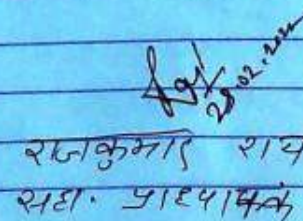 28.02.2022
राजकुमार राय
सहा. प्राध्यापक